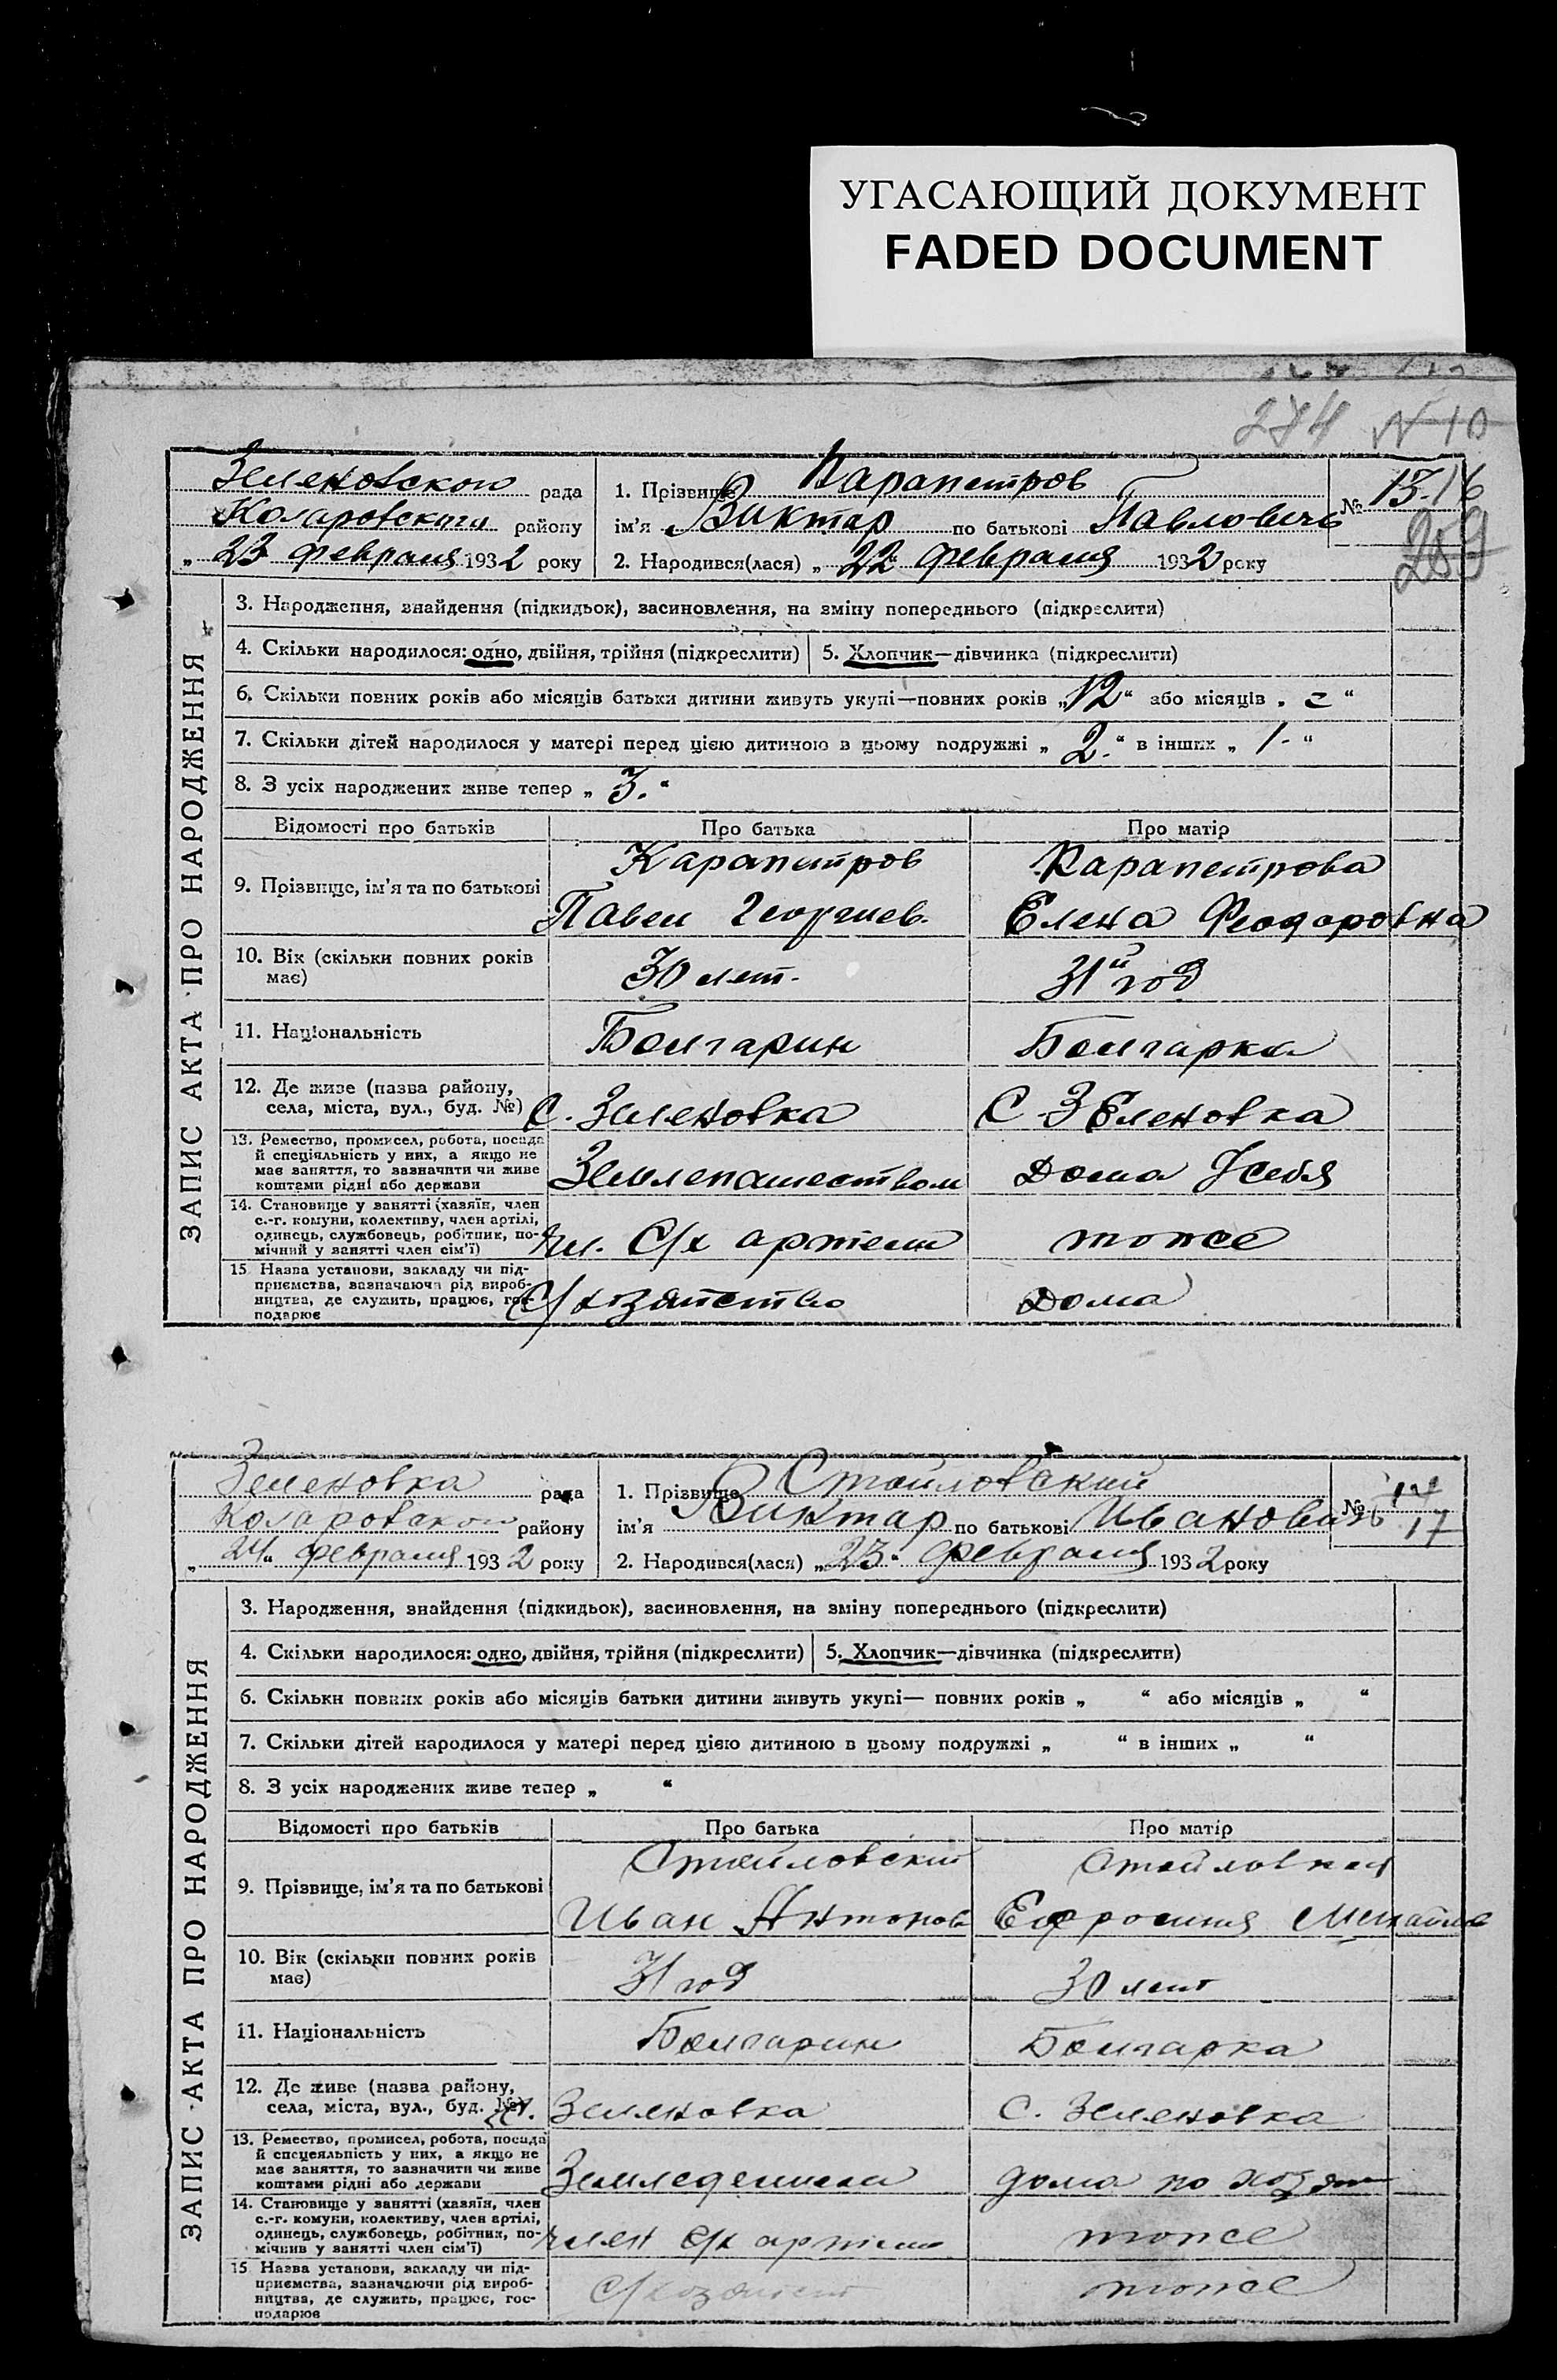 УГАСАЮЩИЙ ДОКУМЕНТ
FADED DOCUMENT
274 N 10
Зеленовской рада
Коларовского району
„ 23 февраля 1932 року
1. Прізвище Карапетров
ім'я Виктар по батькові Павлович
2. Народився(лася) „ 22 “ февраля 1932 року
№ 15. 16
259
ЗАПИС АКТА ПРО НАРОДЖЕННЯ
3. Народження, знайдення (підкидьок), засиновлення, на зміну попереднього (підкреслити)
4. Скільки народилося: одно, двійня, трійня (підкреслити) 5. Хлопчик—дівчинка (підкреслити)
6. Скільки повних років або місяців батьки дитини живуть укупі—повних років „12“ або місяців „ = “
7. Скільки дітей народилося у матері перед цією дитиною в цьому подружжі „ 2. “ в інших „ 1. “
8. З усіх народжених живе тепер „ 3. “
Відомості про батьків Про батька Про матір
9. Прізвище, ім'я та по батькові
Карапетров
Павел Георгиев.
Карапетрова
Елена Феодоровна
10. Вік (скільки повних років
має)
30 лет.
31й год
11. Національність Болгарин Болгарка
12. Де живе (назва району,
села, міста, вул., буд. №)
С. Зеленовка
С Зеленовка
13. Ремество, промисел, робота, посада
й спеціяльність у них, а якщо не
має заняття, то зазначити чи живе
коштами рідні або держави
Землепашеством
Дома Усебя
14. Становище у занятті (хазяїн, член
с.-г. комуни, колективу, член артілі,
одинець, службовець, робітник, по-
мічний у занятті член сім'ї)
чл. С/х артели
тоже
15 Назва установи, закладу чи під-
приємства, зазначаючи рід вироб-
ництва, де служить, працює, гос-
подарює
С/хозяйство
Дома
Зеленовка рада
Коларовской району
„ 24 “ февраля 1932 року
1. Прізвище Стойловский
ім'я Виктар по батькові Иванович
2. Народився(лася) „ 23 “ февраля 1932 року
№
17
ЗАПИС АКТА ПРО НАРОДЖЕННЯ
3. Народження, знайдення (підкидьок), засиновлення, на зміну попереднього (підкреслити)
4. Скільки народилося: одно, двійня, трійня (підкреслити) 5. Хлопчик—дівчинка (підкреслити)
6. Скільки повних років або місяців батьки дитини живуть укупі— повних років „ “ або місяців „ “
7. Скільки дітей народилося у матері перед цією дитиною в цьому подружжі „ “ в інших „ “
8. З усіх народжених живе тепер „ “
Відомості про батьків Про батька Про матір
9. Прізвище, ім'я та по батькові
Стойловский
Иван Антонов
Стойловкая
Ефросиния Михайло
10. Вік (скільки повних років
має)
31 год
30 лет
11. Національність Болгарин Болгарка
12. Де живе (назва району,
села, міста, вул., буд. №)
С. Зеленовка
С. Зеленовка
13. Ремество, промисел, робота, посада
й спецеяльність у них, а якщо не
має заняття, то зазначити чи живе
коштами рідні або держави
дома по
14. Становище у занятті (хазяїн, член
с.-г. комуни, колективу, член артілі,
одинець, службовець, робітник, по-
мічнив у занятті член сім'ї)
член с/х артели
тоже
15 Назва установи, закладу чи під-
приємства, зазначаючи рід вироб-
ництва, де служить, працює, гос-
подарює
тоже